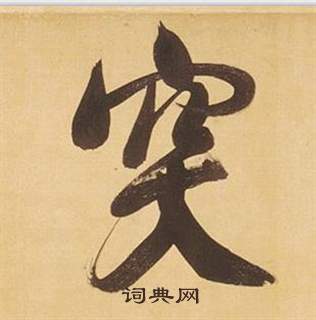 突
词典网